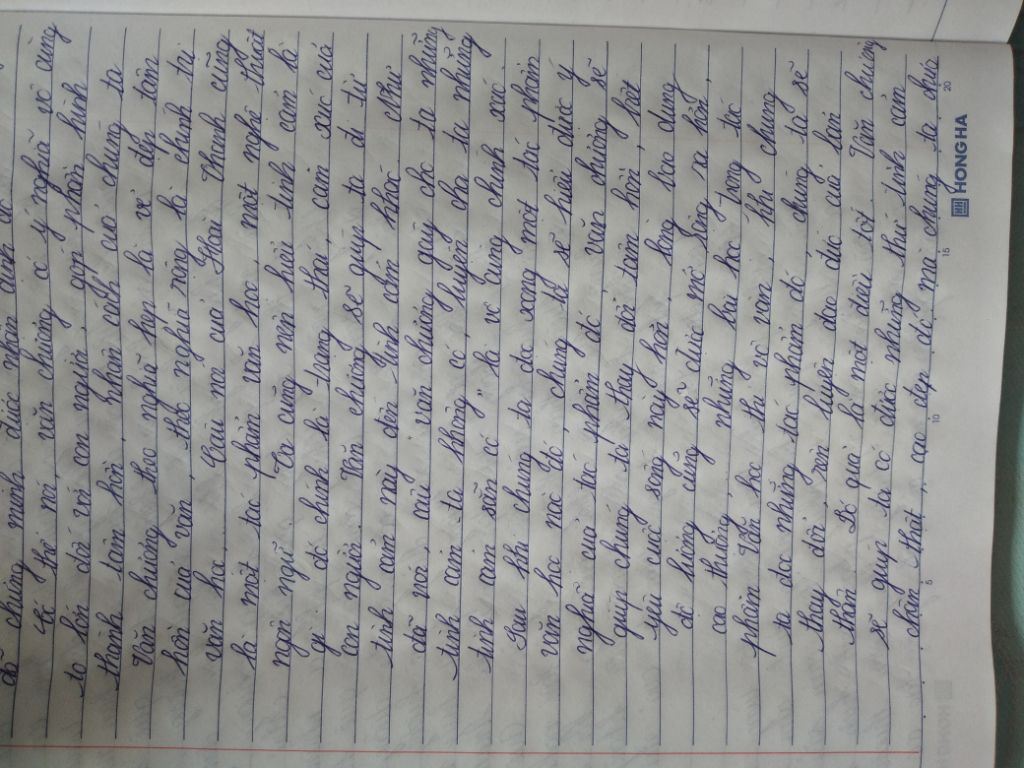 đã chứng minh được nhận định đó
Có thể nói, văn chương có ý nghĩa vô cùng
to lớn đối với con người, góp phần hình
thành tâm hồn, nhân cách của chúng ta
Văn chương theo nghĩa hẹp là vẻ đẹp tâm
hồn của văn, theo nghĩa rộng là chính là
văn học. Câu nói của Hoài Thanh cũng
là một tác phẩm văn học, một nghệ thuật
ngôn ngữ. Ta cũng nên hiểu tình cảm là
gì đó chính là trạng thái, cảm xúc của
con người. Văn chương sẽ giúp ta đi từ
tình cảm này đến tình cảm khác. Như
đã nói, câu văn chương gây cho ta những
tình cảm ta không có, luyện cho ta những
tình cảm sẵn có" là vô cùng chính xác
Sau khi chúng ta đọc xong một tác phẩm
văn học nào đó, chúng ta sẽ hiểu được ý
nghĩa của tác phẩm đó, văn chương sẽ
giúp chúng ta thay đổi tâm hồn, biết
yêu cuộc sống này hơn, lòng bao dung
độ lượng cũng sẽ được mở rộng ra hơn,
cao thượng, những bài học trong tác
phẩm Văn học thi vô vàn, khi chúng
ta đọc những tác phẩm đó, chúng ta sẽ
thay đổi, rèn luyện đạo đức của bản
thân Đó quả là một điều tốt. Văn chương
sẽ giúp ta có được những thứ tình cảm
chân thật, cao đẹp đó, mà chúng ta chưa
5 10 15 20
HONG HA